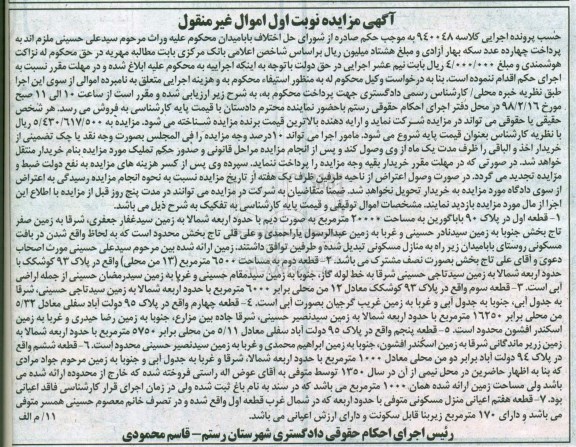 آگهی مزایده نوبت اول اموال غیر منقول
حسب پرونده اجرایی کلاسه ۹۴۰۰۴۸ به موجب حکم صادره از شورای حل اختلاف بابامیدان محکوم علیه وراث مرحوم سیدعلی حسینی ملزم اند به
پرداخت چهارده عدد سکه بهار آزادی و مبلغ هشتاد میلیون ریال براساس شاخص اعلامی بانک مرکزی بابت مطالبه مهریه در حق محکوم له نزاکت
هوشمندی و مبلغ ۴/۰۰۰/۰۰۰ ریال بابت نیم عشر اجرایی در حق دولت با توجه به اینکه اجراییه به محکوم علیه ابلاغ شده و در مهلت مقرر نسبت به
اجرای حکم اقدام ننموده است. بنا به درخواست وکیل محکوم له به منظور استیفاء محکوم به و هزینه اجرایی متعلق به نامبرده اموالی از سوی این اجرا
طبق نظریه خبره محلی/ کارشناس رسمی دادگستری جهت پرداخت محکوم به، به شرح زیر ارزیابی شده و مقرر است از ساعت ۱۰ الی ۱۱ صبح
مورخ ۹۸/۲/۱۶ در محل دفتر اجرای احکام حقوقی رستم باحضور نماینده محترم دادستان با قیمت پایه کارشناسی به فروش می رسد. هر شخص
حقیقی یا حقوقی می تواند در مزایده شرکت نماید و ارایه دهنده بالاترین قیمت برنده مزایده شناخته می شود. مزایده به ۵/۴۳۰/۶۱۷/۵۰۰ ریال
با نظریه کارشناس بعنوان قیمت پایه شروع می شود. مامور اجرا می تواند ۱۰درصد وجه مزایده را فی المجلس بصورت وجه نقد یا چک تضمینی از
خریدار اخذ و الباقی را ظرف مدت یک ماه از وی وصول کند و پس از انجام مزایده مراحل قانونی و صدور حکم تملیک مورد مزایده بنام خریدار منتقل
خواهد شد. در صورتی که در مهلت مقرر خریدار بقیه وجه مزایده را پرداخت ننماید. سپرده وی پس از کسر هزینه های مزایده به نفع دولت ضبط و
مزایده تجدید می گردد. در صورت وصول اعتراض از ناحیه طرفین ظرف یک هفته از تاریخ مزایده نسبت به نحوه انجام مزایده رسیدگی به اعتراض
از سوی دادگاه مورد مزایده به خریدار تحویل نخواهد شد. ضمنا متقاضیان به شرکت در مزایده می توانند در مدت پنج روز قبل از مزایده با اطلاع این
اجرا از مال مورد مزایده بازدید نمایند. مشخصات اموال توقیفی و قیمت پایه کارشناسی به تفکیک به شرح ذیل می باشد.
۱- قطعه اول در پلاک ۹۰ باباکورین به مساحت ۲۰۰۰۰ مترمربع به صورت دیم با حدود اربعه شمالا به زمین سیدغفار جعفری، شرقا به زمین صفر
تاج بخش جنوبا به زمین سیدنادر حسینی و غربا به زمین عبدالرسول یاراحمدی و علی قلی تاج بخش محدود است که به لحاظ واقع شدن در بافت
مسکونی روستای بابامیدان زیر راه به منازل مسکونی تبدیل شده و طرفین توافق داشتند، زمین ارائه شده بین مرحوم سیدعلی حسینی مورث اصحاب
دعوی و آقای علی تاج بخش بصورت نصف مشترک می باشد. ۲- قطعه دوم به مساحت ۶۵۰۰ مترمربع (۱۳ من محلی) واقع در پلاک ۹۳ کوشکک با
حدود اربعه شمالا به زمین سیدتاجی حسینی شرقا به خط لوله گاز، جنوبا به زمین سیدمقام حسینی و غربا به زمین سیدرمضان حسینی از جمله اراضی
آبی است. ۳- قطعه سوم واقع در پلاک ۹۳ کوشکک معادل ۱۲ من محلی برابر ۶۰۰۰ مترمربع با حدود اربعه شمالا به زمین سیدتاجی حسینی، شرقا
به جدول آبی، جنوبا به جدول آبی و غربا به زمین غریب گرجیان بصورت آبی است. ۴- قطعه چهارم واقع در پلاک ۹۵ دولت آباد سفلی معادل ۵/۳۲
من محلی برابر ۱۶۲۵۰ مترمربع با حدود اربعه شمالا به زمین سیدنصیر حسینی، شرقا جاده بین مزارع، جنوبا به زمین رضا حیدری و غربا به زمین
اسکندر افشون محدود است. ۵- قطعه پنجم واقع در پلاک ۹۵ دولت آباد سفلی معادل ۵/۱۱ من محلی برابر ۵۷۵۰ مترمربع با حدود اربعه شمالا به
زمین زریر ماندگانی شرقا به زمین اسکندر افشون، جنوبا به زمین ابراهیم محمدی و غربا به زمین سیدنصیر حسینی محدود است. ۶- قطعه ششم واقع
در پلاک ۹۴ دولت آباد برابر دو من محلی معادل ۱۰۰۰ مترمربع با حدود اربعه شمالا، شرقا و غربا به جدول آبی و جنوبا به زمین مرحوم جواد مرادی
که بنا به اظهار حاضرین در محل نیمی از آن در سال ۱۳۵۰ توسط متوفی به آقای عوض اله راستی فروخته شده که خارج از محدوده ارائه شده می
باشد ولی مساحت زمین ارائه شده همان ۱۰۰۰ مترمربع می باشد که در سند به نام باغ ثبت شده ولی در زمان اجرای قرار کارشناسی فاقد اعیانی
بود. ۷- قطعه هفتم اعیانی منزل مسکونی متوفی با حدود اربعه که در شمال غرب قطعه اول واقع شده و در تصرف خانم معصوم حسینی همسر متوفی
می باشد و دارای ۱۷۰ مترمربع زیربنا قابل سکونت و دارای ارزش اعیانی می باشد. ۱۱/ م الف
رئیس اجرای احکام حقوقی دادگستری شهرستان رستم – قاسم محمودی